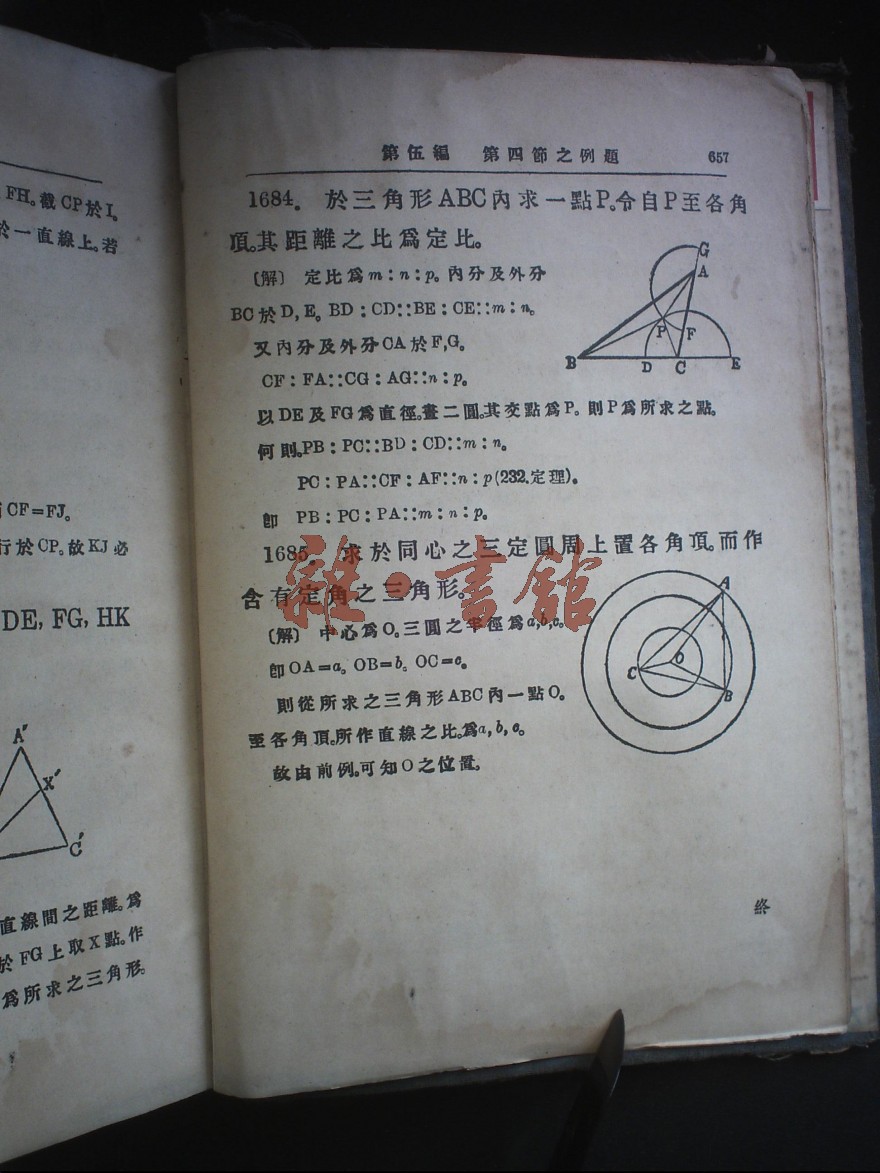 FH。截CP於I。
於一直線上。若
CF=FJ。
行於CP。故KJ必
DE, FG, HK
A′
X′
C′
直線間之距離。爲
於FG上取X點。作
爲所求之三角形。
第伍編 第四節之例題 657
1684. 於三角形ABC內求一點P。令自P至各角
頂。其距離之比爲定比。
〔解〕 定比爲m:n:p。內分及外分
BC於D,E。BD:CD::BE:CE::m:n。
又內分及外分CA於F,G。
CF:FA::CG:AG::n:p。
以DE及FG爲直徑。畫二圓。其交點爲P。則P爲所求之點。
何則。PB:PC::BD:CD::m:n。
PC:PA::CF:AF::n:p(232.定理)。
卽 PB:PC:PA::m:n:p。
G
A
P
F
B
D
C
E
1685. 求於同心之三定圓周上置各角頂。而作
含有定角之三角形。
〔解〕 中心爲O。三圓之半徑爲a,b,c。
卽OA=a。OB=b。OC=c。
則從所求之三角形ABC內一點O。
至各角頂。所作直線之比。爲a,b,c。
故由前例。可知O之位置。
A
O
C
B
終
雜·書館